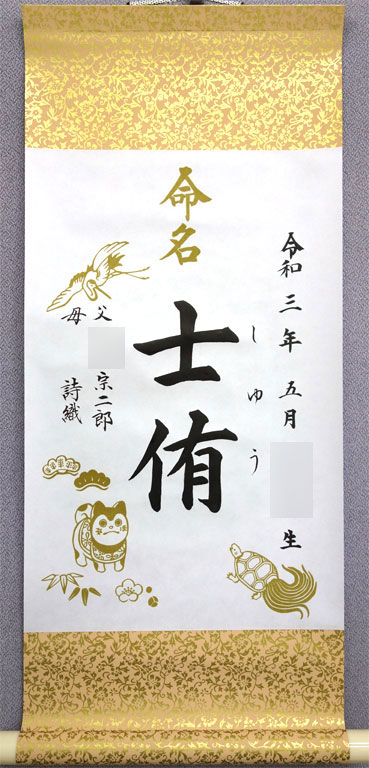 令和三年五月 生
しゅう
命名
士侑
父 宗二郎
母 詩織